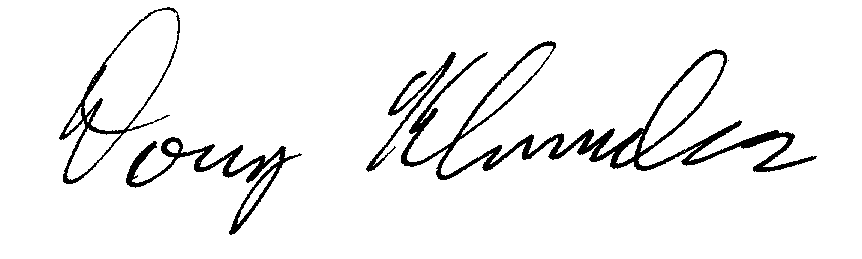 Doug Klunder